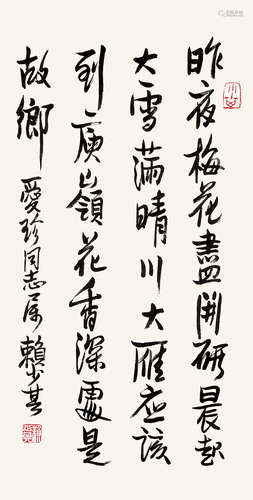 昨夜梅花盡開研晨起
大雪滿晴川大雁应该
到庾嶺花香深處是
故鄉
愛珍同志属 賴少其